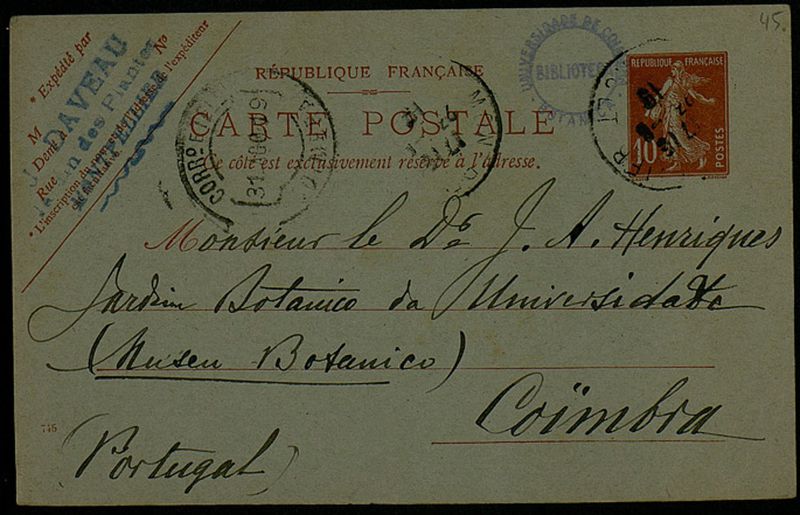 45.
* Expédié par
M
Nº
Demt à
Rue
* L'inscription du nom et de l'adresse de l'expéditeur est facultative.
J. DAVEAU
Jardin des Plantes
MONTPELLIER
UNIVERSIDADE DE
BIBLIOTE
BOTAN
RÉPUBLIQUE FRANÇAISE
CARTE POSTALE
Ce côté est exclusivement réservé à l'adresse.
RÉPUBLIQUE FRANÇAISE
10
POSTES
CORRº
Monsieur le Dr J. A. Henriques
Jardim Botanico da Universidade
(Museu Botanico)
Coïmbra
745
(Portugal)